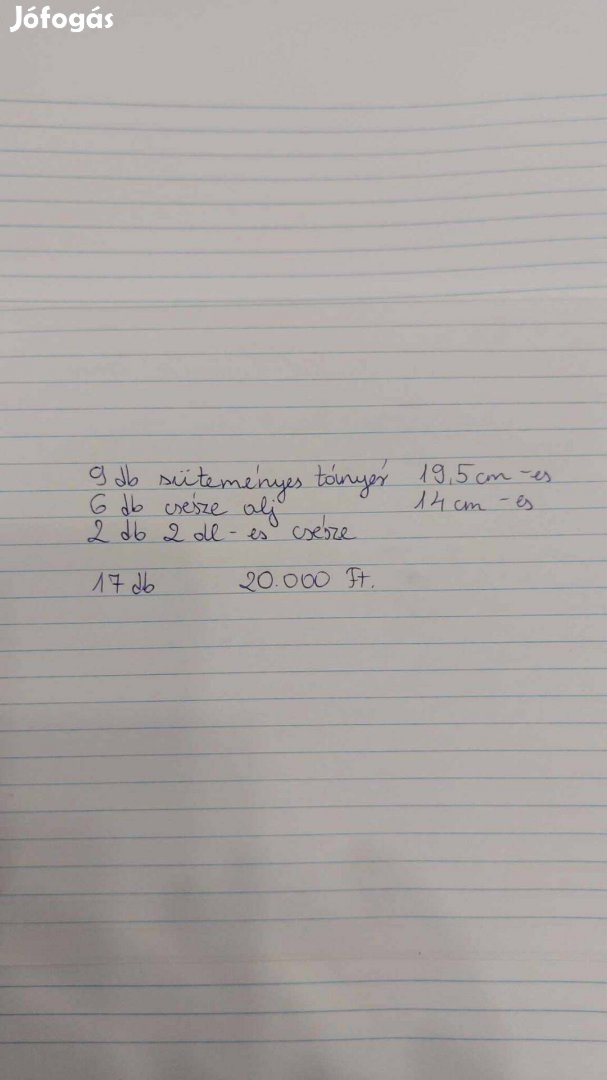 Jófogás
9 db süteményes tányér 19,5 cm-es
6 db csésze alj 14 cm-es
2 db 2 dl-es csésze
17 db 20.000 Ft.